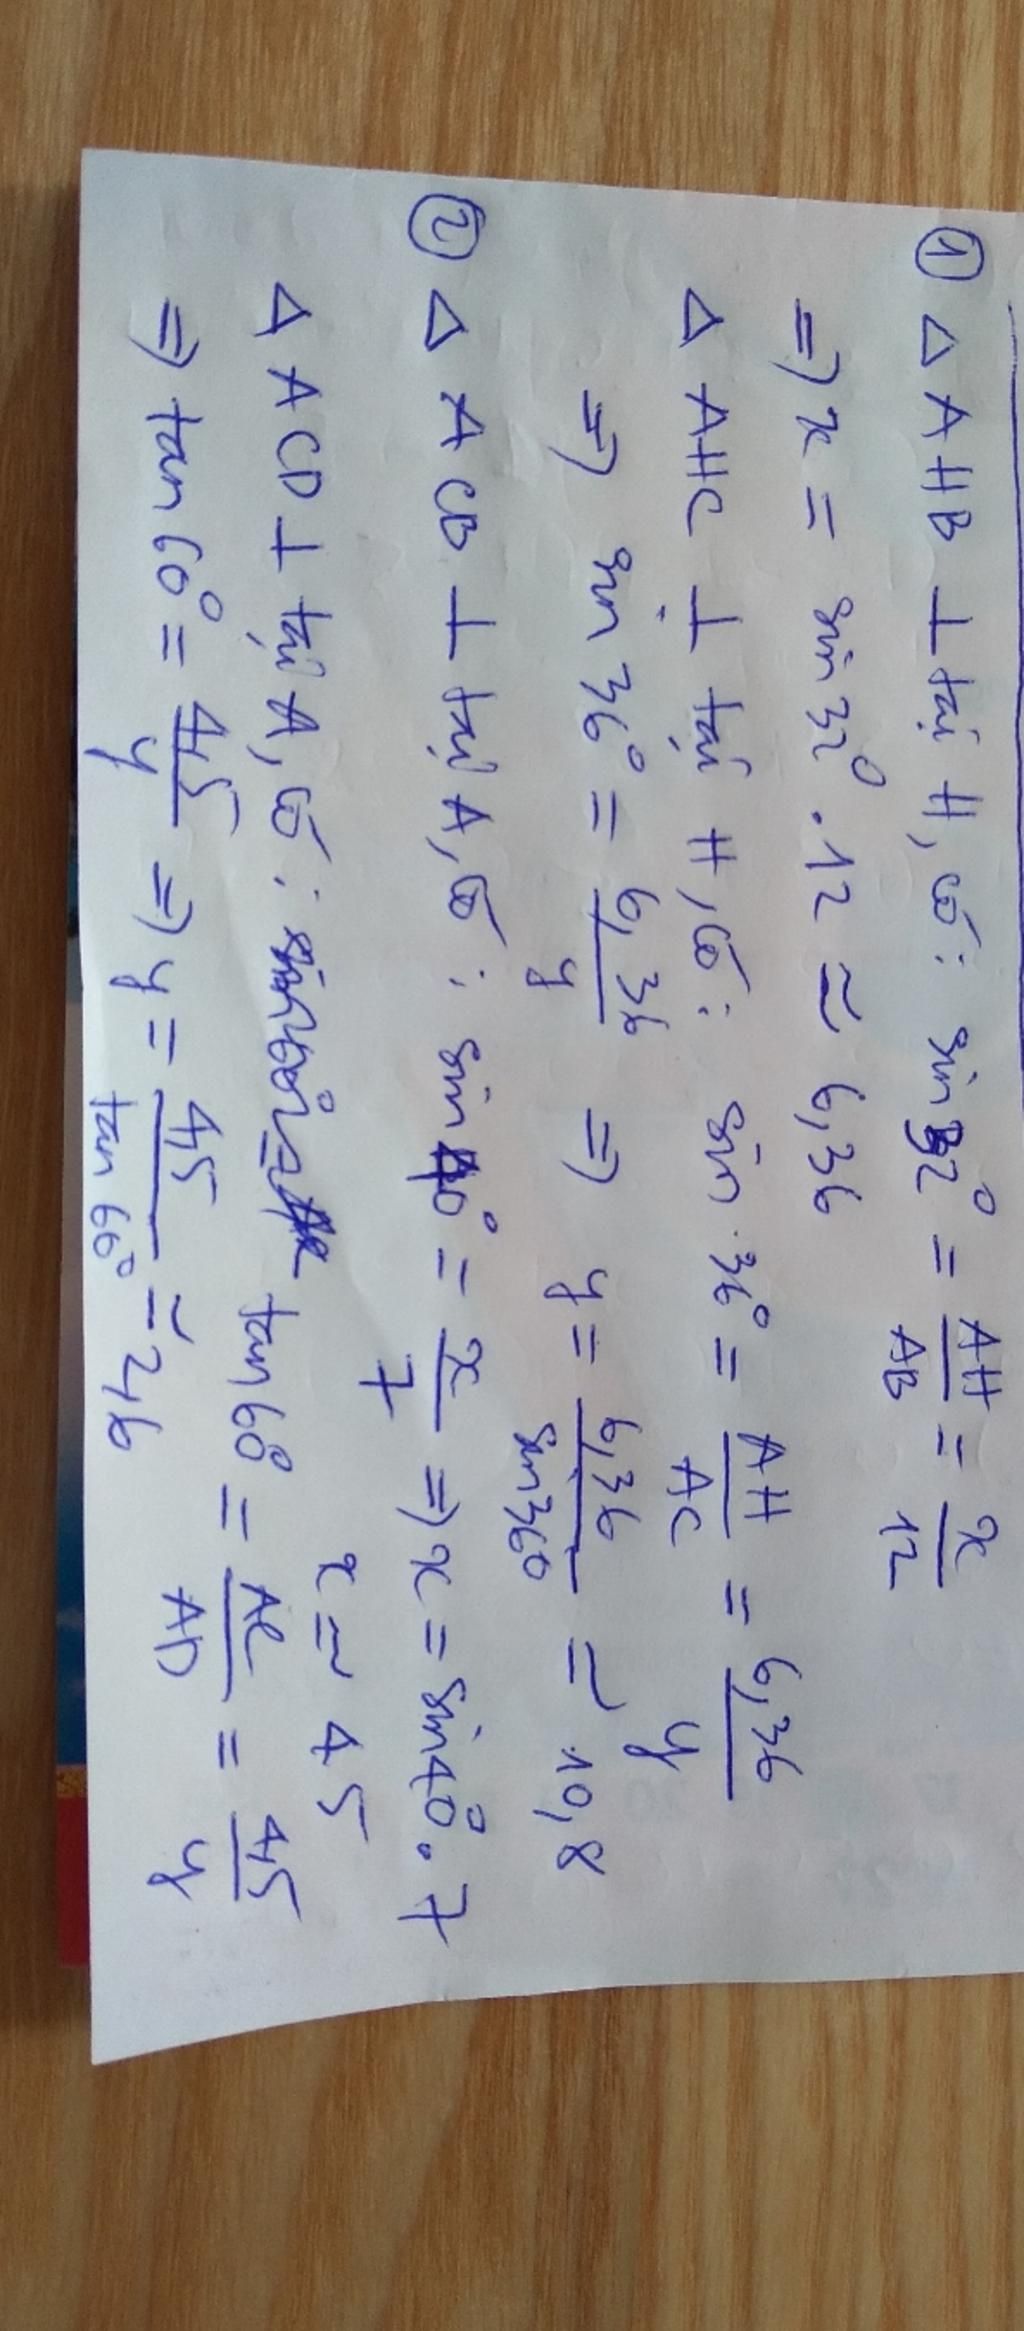 ① Δ AHB ⊥ tại H, có: sin 32° = AH/AB = x/12
=> x = sin 32° . 12 ≃ 6,36
Δ AHC ⊥ tại H, có: sin 36° = AH/AC = 6,36/y
=> sin 36° = 6,36/y => y = 6,36/sin 36° ≃ 10,8
② Δ ACB ⊥ tại A, có: sin 40° = x/7 => x = sin 40° . 7
x ≃ 4,5
Δ ACD ⊥ tại A, có: tan 60° = AC/AD = 4,5/y
=> tan 60° = 4,5/y => y = 4,5/tan 60° ≃ 2,6